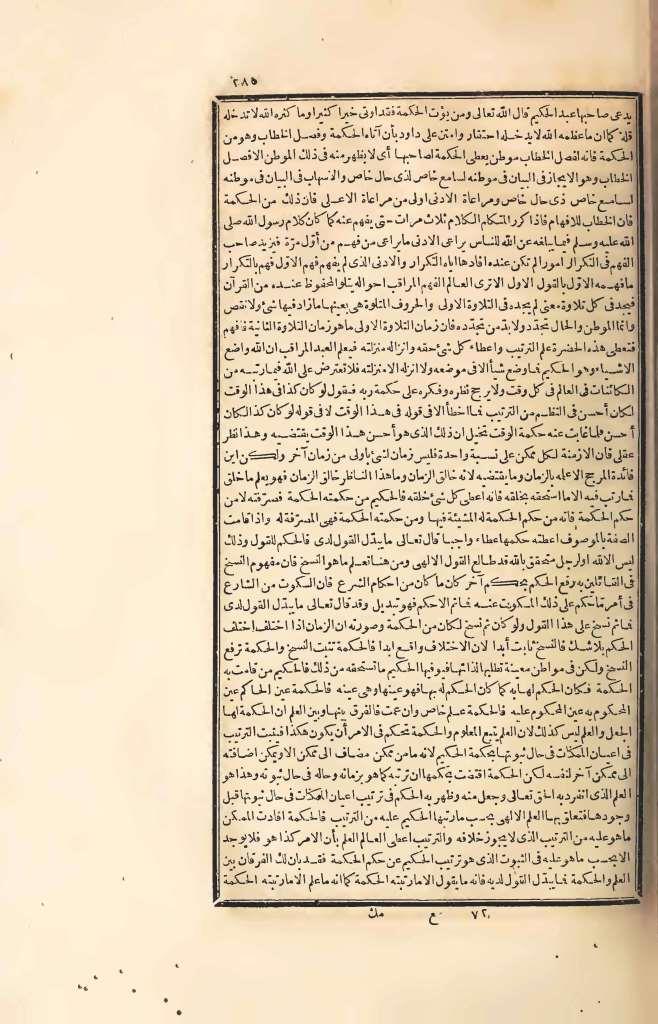 ٢٨٥
يدعى صاحبها عبد الحكيم قال الله تعالى ومن يؤت الحكمة فقد اوتى خيرا كثيرا وما كثره الله لا تدخله
قلة كما ان ما عظمه الله لا يدخله احتقار وامتن على داود بأن آتاه الحكمة وفصل الخطاب وهو من
الحكمة فانه لفصل الخطاب موطن يعطى الحكمة لصاحبها أى لا يظهر منه فى ذلك الموطن الا فصل
الخطاب وهو الايجاز فى البيان فى موطنه لسامع خاص لذى حال خاص والاسهاب فى البيان فى موطنه
لسامع خاص ذى حال خاص ومراعاة الادنى اولى من مراعاة الاعلى فان ذلك من الحكمة
فان الخطاب للافهام فاذا كرر المتكلم الكلام ثلاث مرات حتى يفهم عنه كما كان كلام رسول الله صلى
الله عليه وسلم فيما يبلغه عن الله للناس يراعى الادنى ما يراعى من فهم من أول مرة فيزيد صاحب
الفهم فى التكرار أمورا لم تكن عنده افادها اياه التكرار والادنى الذى لم يفهم فهم الاول فهم بالتكرار
ما فهمه الاول بالقول الاول الا ترى العالم الفهم المراقب احواله يتلو المحفوظ عنده من القرآن
فيجد فى كل تلاوة معنى لم يجده فى التلاوة الاولى والحروف المتلوة هى بعينها ما زاد فيها شئ ولا نقص
وانما الموطن والحال تجدد ولا بد من تجدده فان زمان التلاوة الاولى ما هو زمان التلاوة الثانية فافهم
فتعطى هذه الحضرة علم الترتيب واعطاء كل شئ حقه وانزاله منزلته فيعلم العبد المراقب ان الله واضع
الاشياء وهو الحكيم فما وضع شيأ الا فى موضعه ولا انزله الا منزلته فلا تعترض على الله فيما رتبه من
الكائنات فى العالم فى كل وقت ولا يرجح نظره وفكره على حكمة ربه فيقول لو كان كذا فى هذا الوقت
لكان أحسن فى النظم من الترتيب فما اخطأ الا فى قوله فى هذا الوقت لا فى قوله لو كان كذا لكان
أحسن فلما غابت عنه حكمة الوقت تخيل ان ذلك الذى هو أحسن هذا الوقت يقتضيه وهذا نظر
عقلى فان الازمنة لكل ممكن على نسبة واحدة فليس زمان لشئ باولى من زمان آخر ولكن اين
فائدة المرجح الا علمه بالزمان وما يقتضيه لانه خالق الزمان وما هذا الناظر خالق الزمان فهو يعلم ما خلق
فما رتب فيه الا ما استحقه بخلقه فانه أعطى كل شئ خلقه فالحكيم من حكمته الحكمة فصرفته لا من
حكم الحكمة فانه من حكم الحكمة له المشيئة فيها ومن حكمته الحكمة فهى المصرفة له واذا قامت
الصفة بالموصوف اعطته حكمها عطاء واجبا قال تعالى ما يبدل القول لدى فالحكم للقول وذلك
ليس الا لله اولرجل متحقق بالله قد طالع القول الالهى ومن هنا تعلم ما هو النسخ فان مفهوم النسخ
فى القائلين به رفع الحكم بحكم آخر كان ما كان من احكام الشرع فان السكوت من الشارع
فى أمر ما حكم على ذلك المسكوت عنه فما ثم الا حكم فهو تبديل وقد قال تعالى ما يبدل القول لدى
فما ثم نسخ على هذا القول ولو كان ثم نسخ لكان من الحكمة وصورته ان الزمان اذا اختلف اختلف
الحكم بلا شك فالنسخ ثابت أبدا لان الاختلاف واقع ابدا فالحكمة تثبت النسخ والحكمة ترفع
النسخ ولكن فى مواطن معينة تطلبها لذاتها فيوفيها الحكيم ما تستحقه من ذلك فالحكيم من قامت به
الحكمة فكان الحكم لها به كما كان الحكم له بها فهو عينها وهى عينه فالحكمة عين الحاكم عين
المحكوم به عين المحكوم عليه فالحكمة علم خاص وان عمت فالفرق بينها وبين العلم ان الحكمة لها
الجعل والعلم ليس كذلك لان العلم يتبع المعلوم والحكمة تحكم فى الامر أن يكون هكذا فيثبت الترتيب
فى اعيان الممكنات فى حال ثبوتها بحكمة الحكيم لانه ما من ممكن مضاف الى ممكن الا ويمكن اضافته
الى ممكن آخر لنفسه لكن الحكمة اقتضت بحكمها ان ترتبه كما هو بزمانه وحاله فى حال ثبوته وهذا هو
العلم الذى انفرد به الحق تعالى وجعل منه وظهر به الحكم فى ترتيب اعيان الممكنات فى حال ثبوتها قبل
وجودها فتعلق بها العلم الالهى بحسب ما رتبها الحكيم عليه من الترتيب فالحكمة افادت الممكن
ما هو عليه من الترتيب الذى لا يجوز خلافه والترتيب اعطى العالم العلم بأن الامر كذا هو فلا يوجد
الا بحسب ما هو عليه فى الثبوت الذى هو ترتيب الحكيم عن حكم الحكمة فقد بان لك الفرقان بين
العلم والحكمة فما يبدل القول لديه فانه ما يقول الا ما رتبته الحكمة كما انه ما علم الا ما رتبته الحكمة
٧٢ ع مك